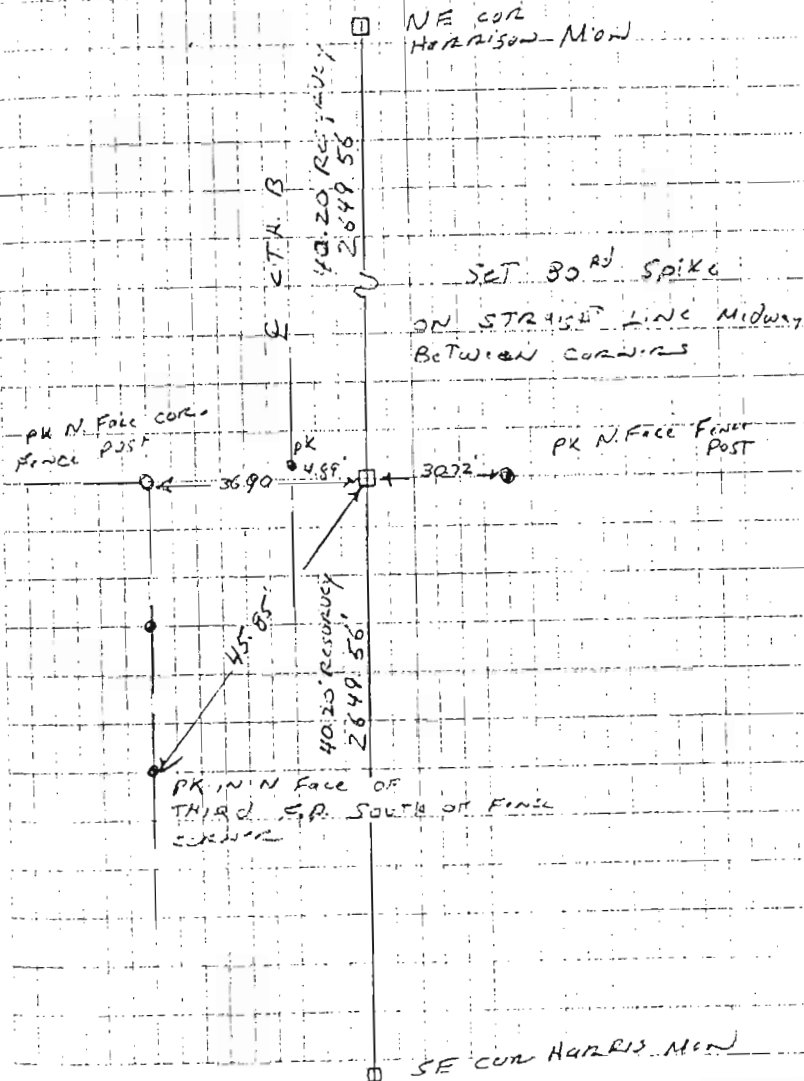 NE COR
HARRISON MON
40.20 RESURVEY
2649.56
℄ C.T.H. B
SET 80 Rd SPIKE
ON STRAIGHT LINE MIDWAY
BETWEEN CORNERS
PK N. FACE COR.
FENCE POST
PK
4.89'
36.90
30.72'
PK N. FACE FENCE
POST
45.85'
40.20' RESURVEY
2649.56'
PK IN N FACE OF
THIRD F.P. SOUTH OF FENCE
CORNER
SE COR HARRIS MON